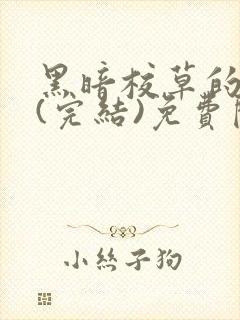 黑暗校草的
(完結)免費
小絲子狗